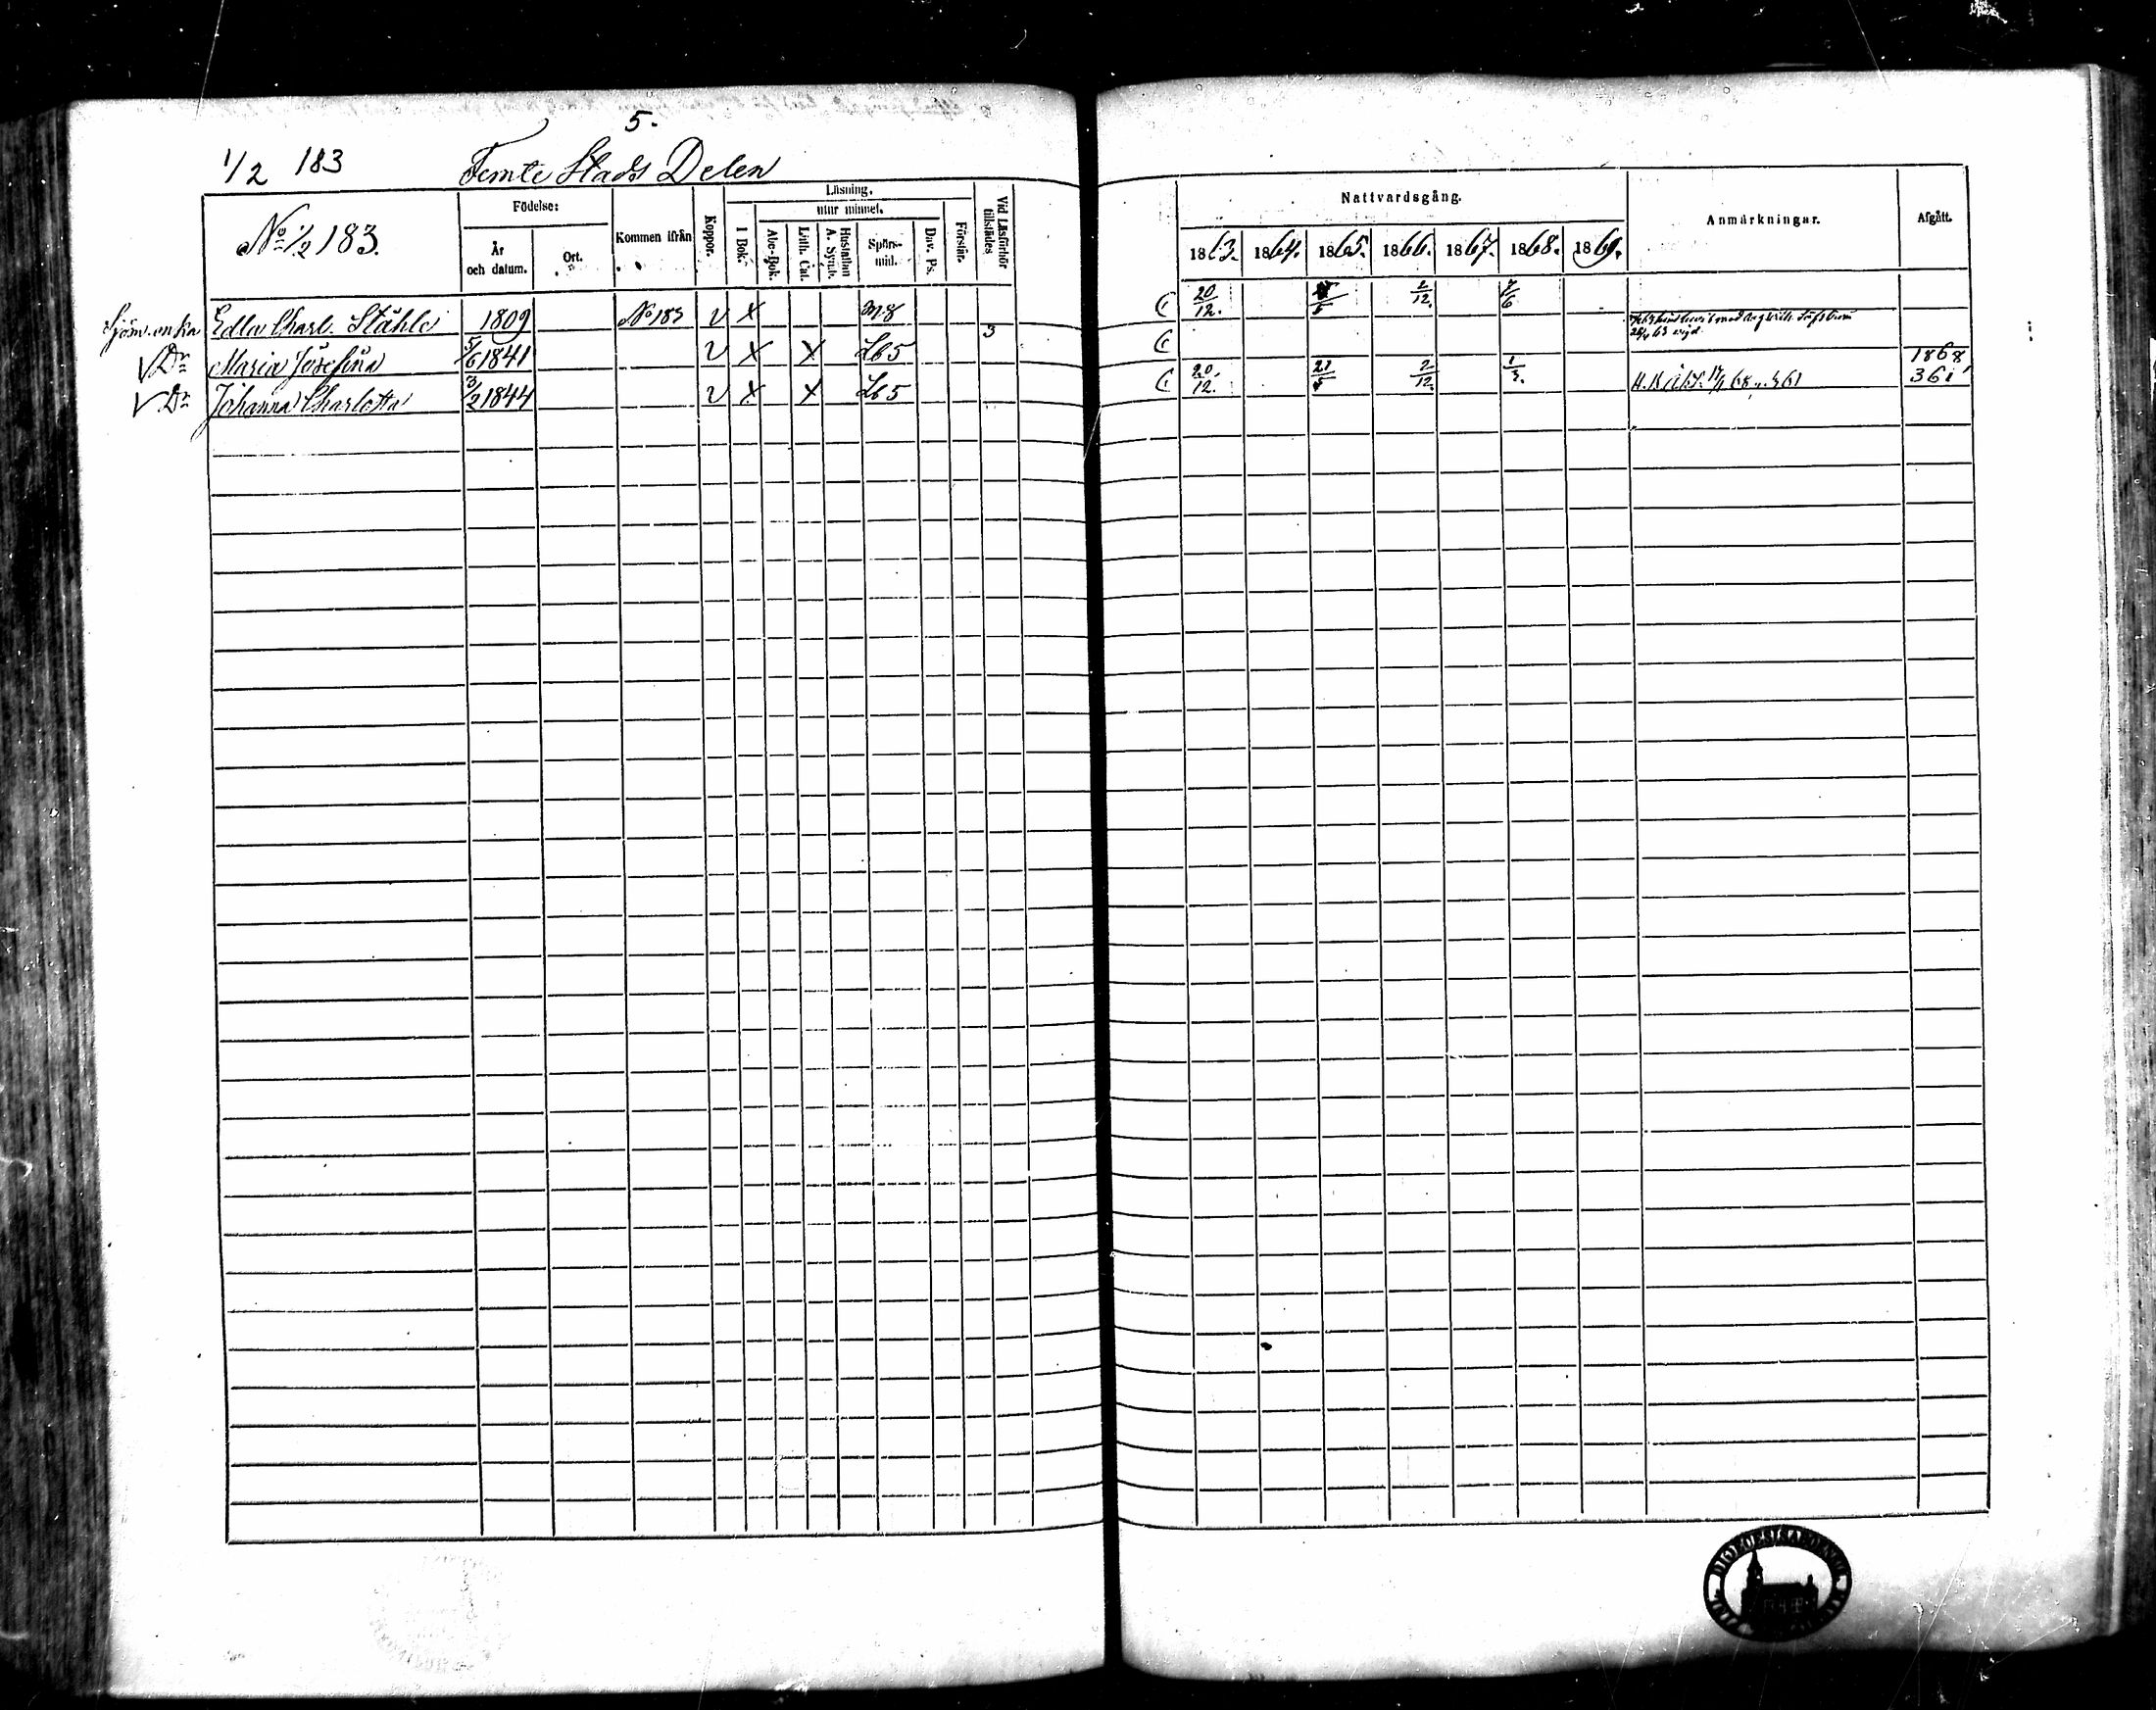 5.
1/2 183 Femte Stads Delen
No 1/2 183.
Födelse:
År och datum.
Ort.
Kommen ifrån
Koppor.
Läsning.
utur minnet.
I Bok.
Abc-Bok.
Luth. Cat.
Hustaflan A. Symb.
Spörs-mål.
Dav. Ps.
Förstår.
Vid Läsförhör tillstädes
Nattvardsgång.
1863. 1864. 1865. 1866. 1867. 1868. 1869.
Anmärkningar.
Afgått.
Sjöm. enka Edla Charl. Ståhle 1809 No 183 v X m.8 20/12. 2/12.
V Dr Maria Josefina 5/6 1841 v X X Lb 5 3 28/4 63 vigd.
V Dr Johanna Charlotta 3/2 1844 v X X Lb 5 20/12. 21/5 2/12 1868 361